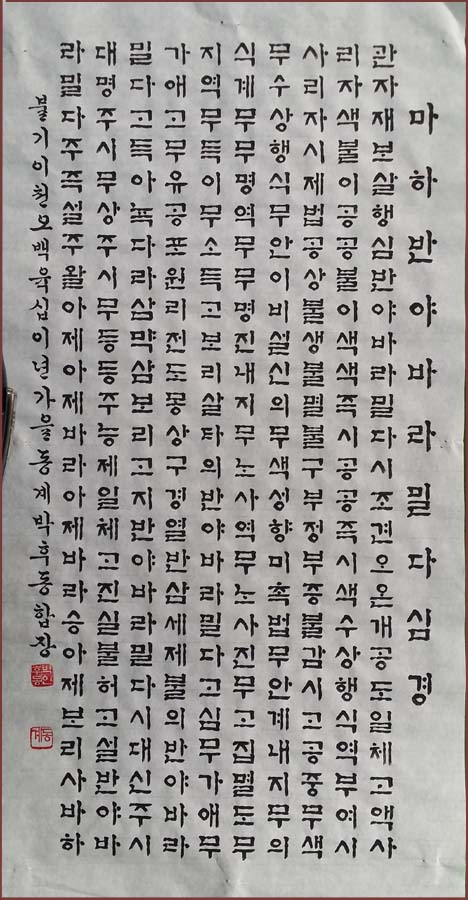 마하반야바라밀다심경
관자재보살행심반야바라밀다시조견오온개공도일체고액사
리자색불이공공불이색색즉시공공즉시색수상행식역부여시
사리자시제법공상불생불멸불구부정부증불감시고공중무색
무수상행식무안이비설신의무색성향미촉법무안계내지무의
식계무무명역무무명진내지무노사역무노사진무고집멸도무
지역무득이무소득고보리살타의반야바라밀다고심무가애무
가애고무유공포원리전도몽상구경열반삼세제불의반야바라
밀다고득아뇩다라삼먁삼보리고지반야바라밀다시대신주시
대명주시무상주시무등등주능제일체고진실불허고설반야바
라밀다주즉설주왈아제아제바라아제바라승아제보리사바하
불기이천오백육십이년가을동계박후동합장
동계